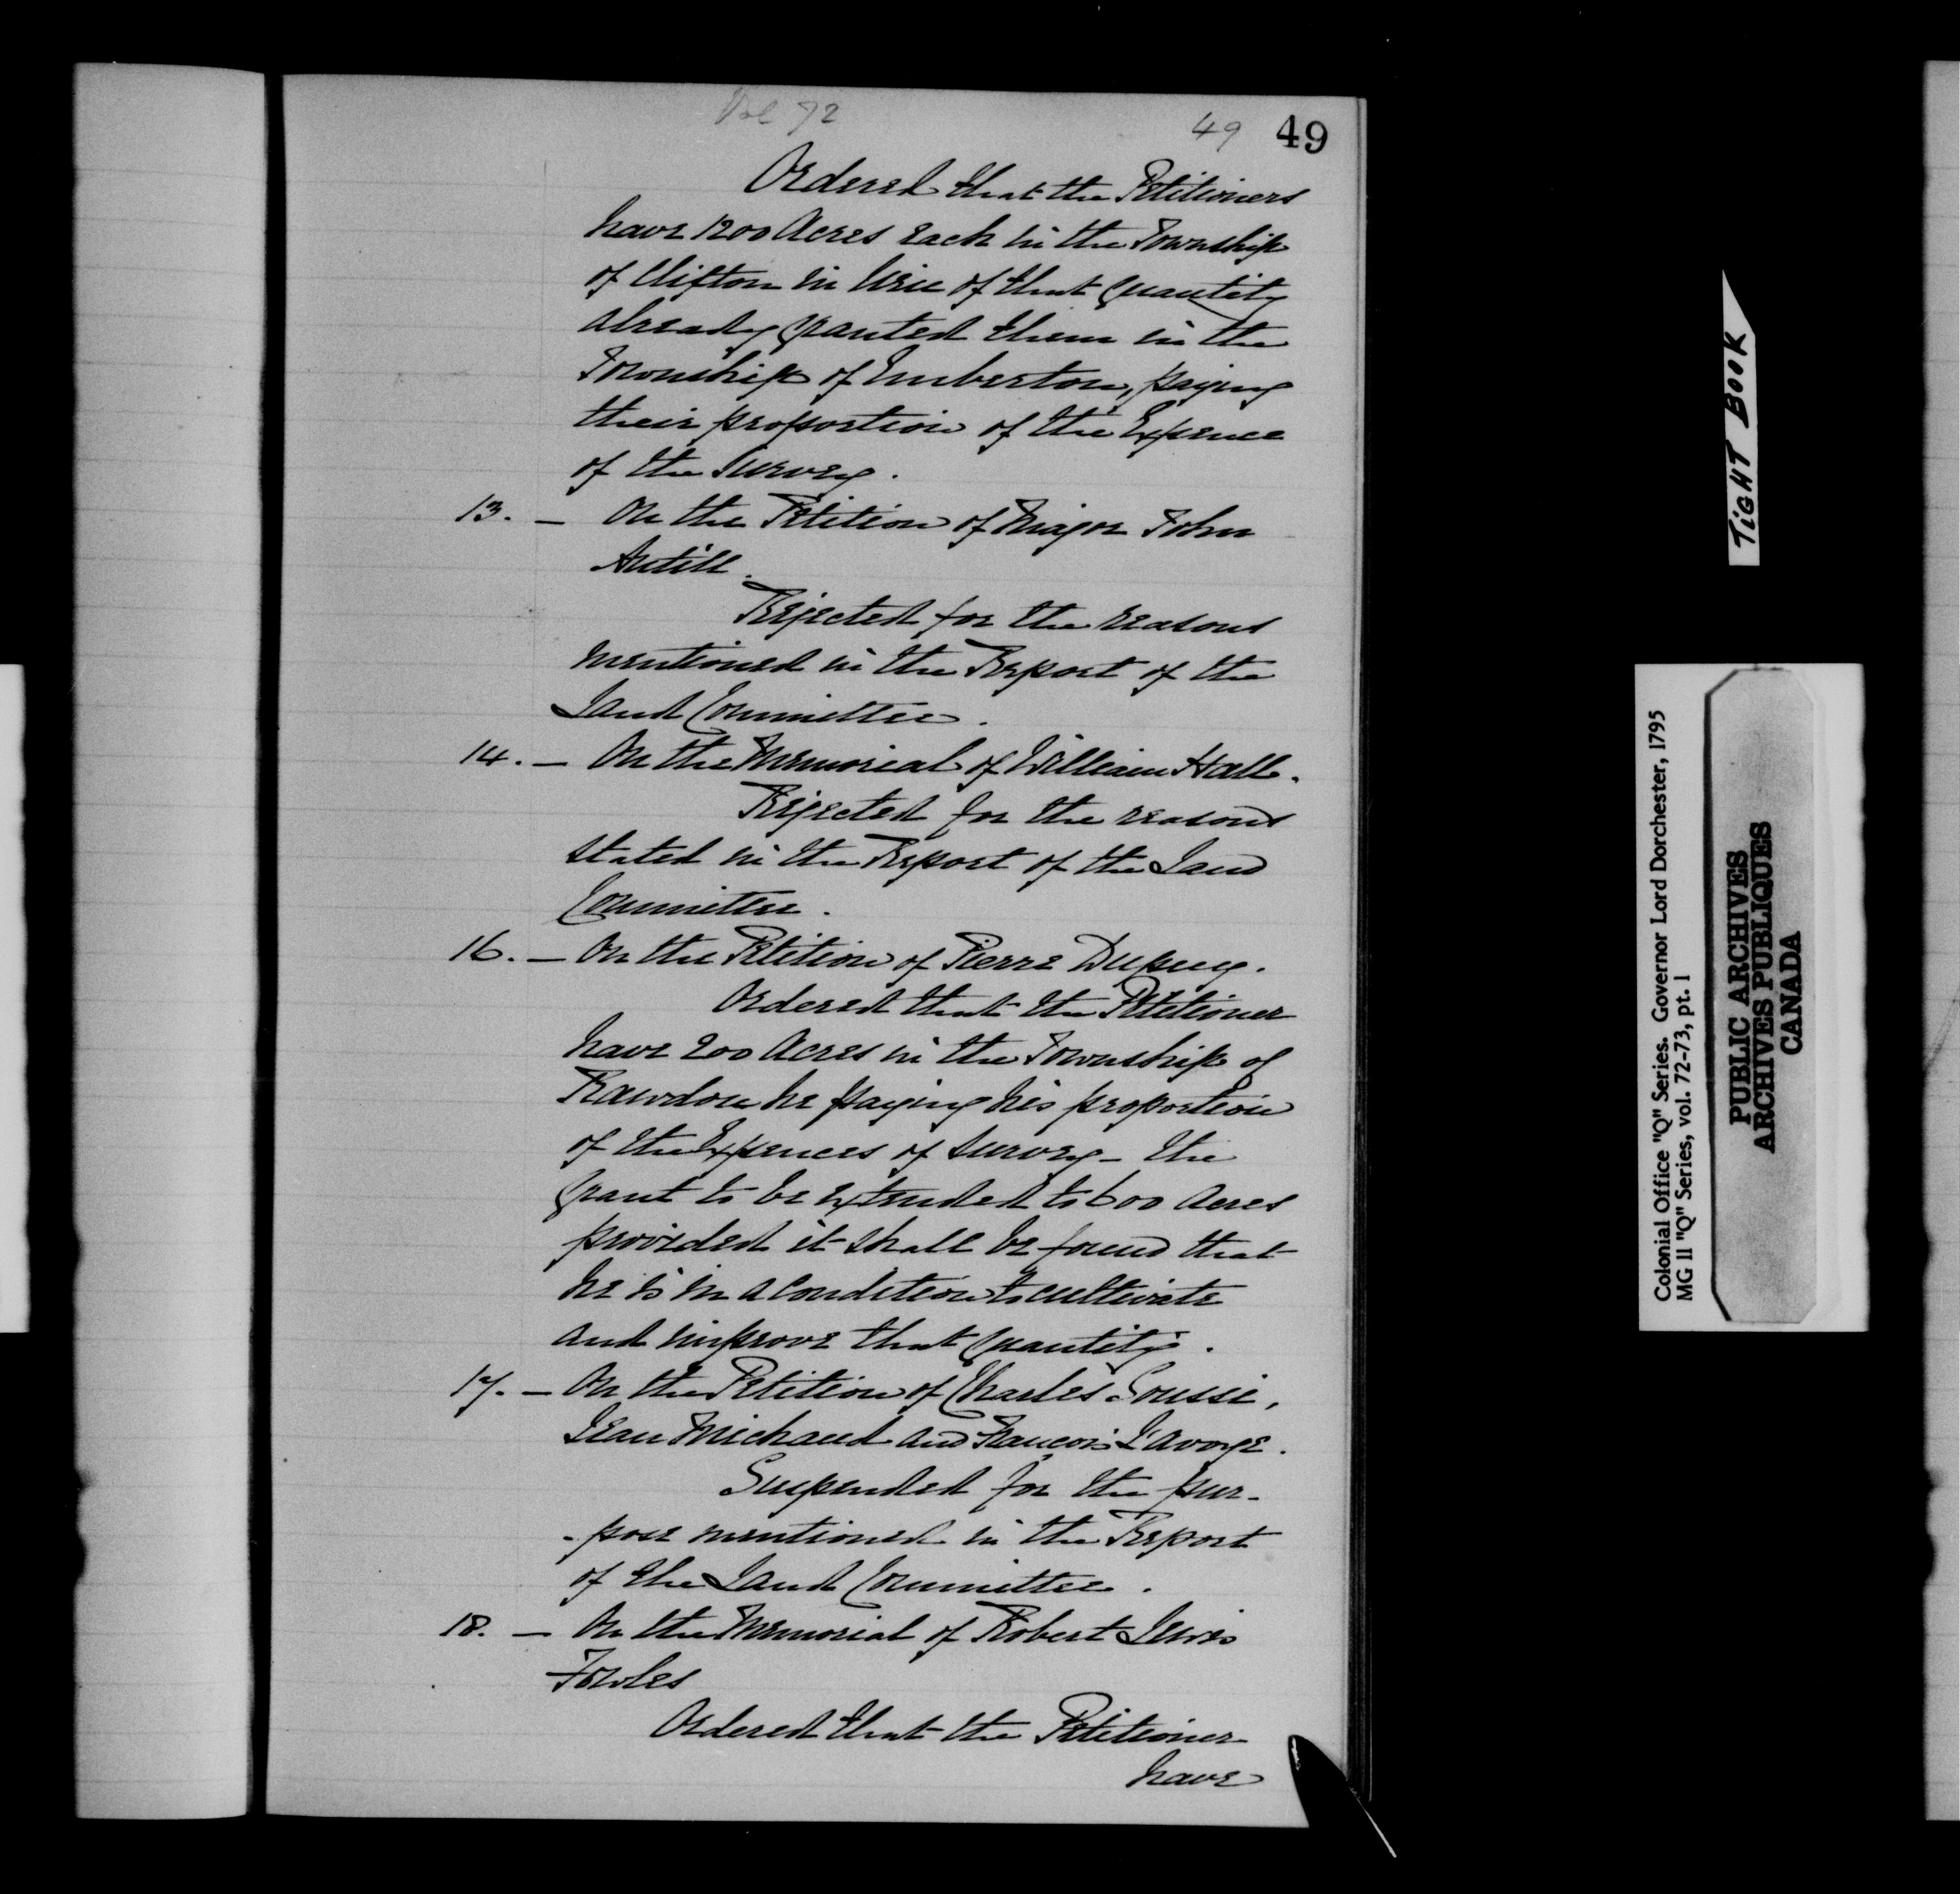 Vol 72
49 49
Ordered that the Petitioners
have 1200 Acres each in the Township
of Clifton in lieu of that quantity
already granted them in the
Township of Emberton, paying
their proportion of the Expence
of the Survey.
13. — On the Petition of Major John
Antill.
Rejected for the reasons
mentioned in the Report of the
Land Committee.
14. — On the Memorial of William Hall.
Rejected for the reasons
stated in the Report of the Land
Committee.
16. — On the Petition of Pierre Dupuy.
Ordered that the Petitioner
have 200 Acres in the Township of
Rawdon he paying his proportion
of the Expences of Survey — the
Grant to be extended to 600 Acres
provided it shall be found that
he is in a Condition to cultivate
and improve that quantity.
17. — On the Petition of Charles Soussi,
Jean Michaud and Francois
Suspended for the pur-
-pose mentioned in the Report
of the Land Committee.
18. — On the Memorial of Robert Lewis
Fowles
Ordered that the Petitioner
have
TIGHT BOOK
Colonial Office "Q" Series. Governor Lord Dorchester, 1795
MG 11 "Q" Series, vol. 72-73, pt. 1
PUBLIC ARCHIVES
ARCHIVES PUBLIQUES
CANADA